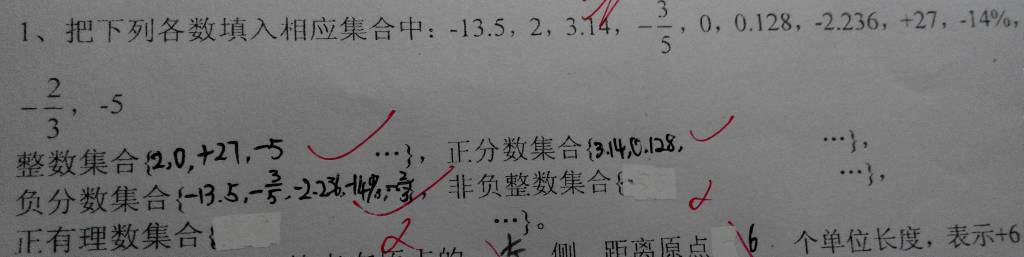 1、把下列各数填入相应集合中：-13.5，2，3.14，-3/5，0，0.128，-2.236，+27，-14%，
-2/3，-5
整数集合{2,0,+27,-5 …}，正分数集合{3.14,0.128, …}，
负分数集合{-13.5,-3/5,-2.236,-14%,-2/3 …}，非负整数集合{ …}，
正有理数集合{ …}。
点的 右 侧，距离原点 6 个单位长度，表示+6